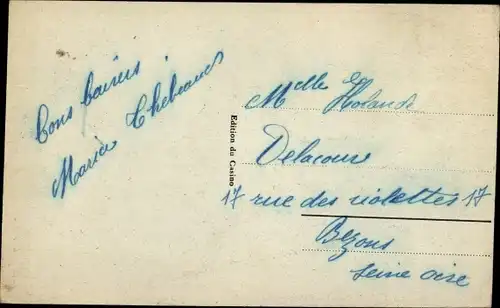 Bons baisers
Maria
Edition du Casino
Melle
Delacour
17 rue des violettes 17
Bezons
Seine oise